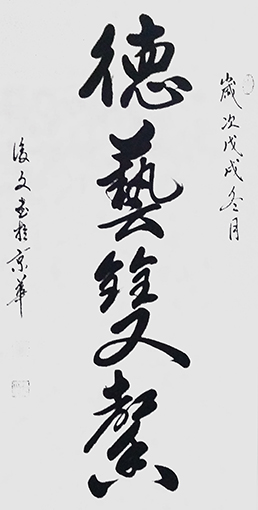 歲次戊戌冬月
德藝雙馨
文書於京華